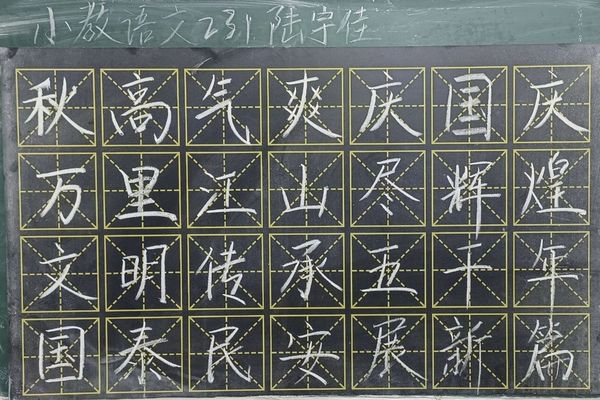 小教语文231 陆宇佳
秋高气爽庆国庆
万里江山尽辉煌
文明传承五千年
国泰民安展新篇